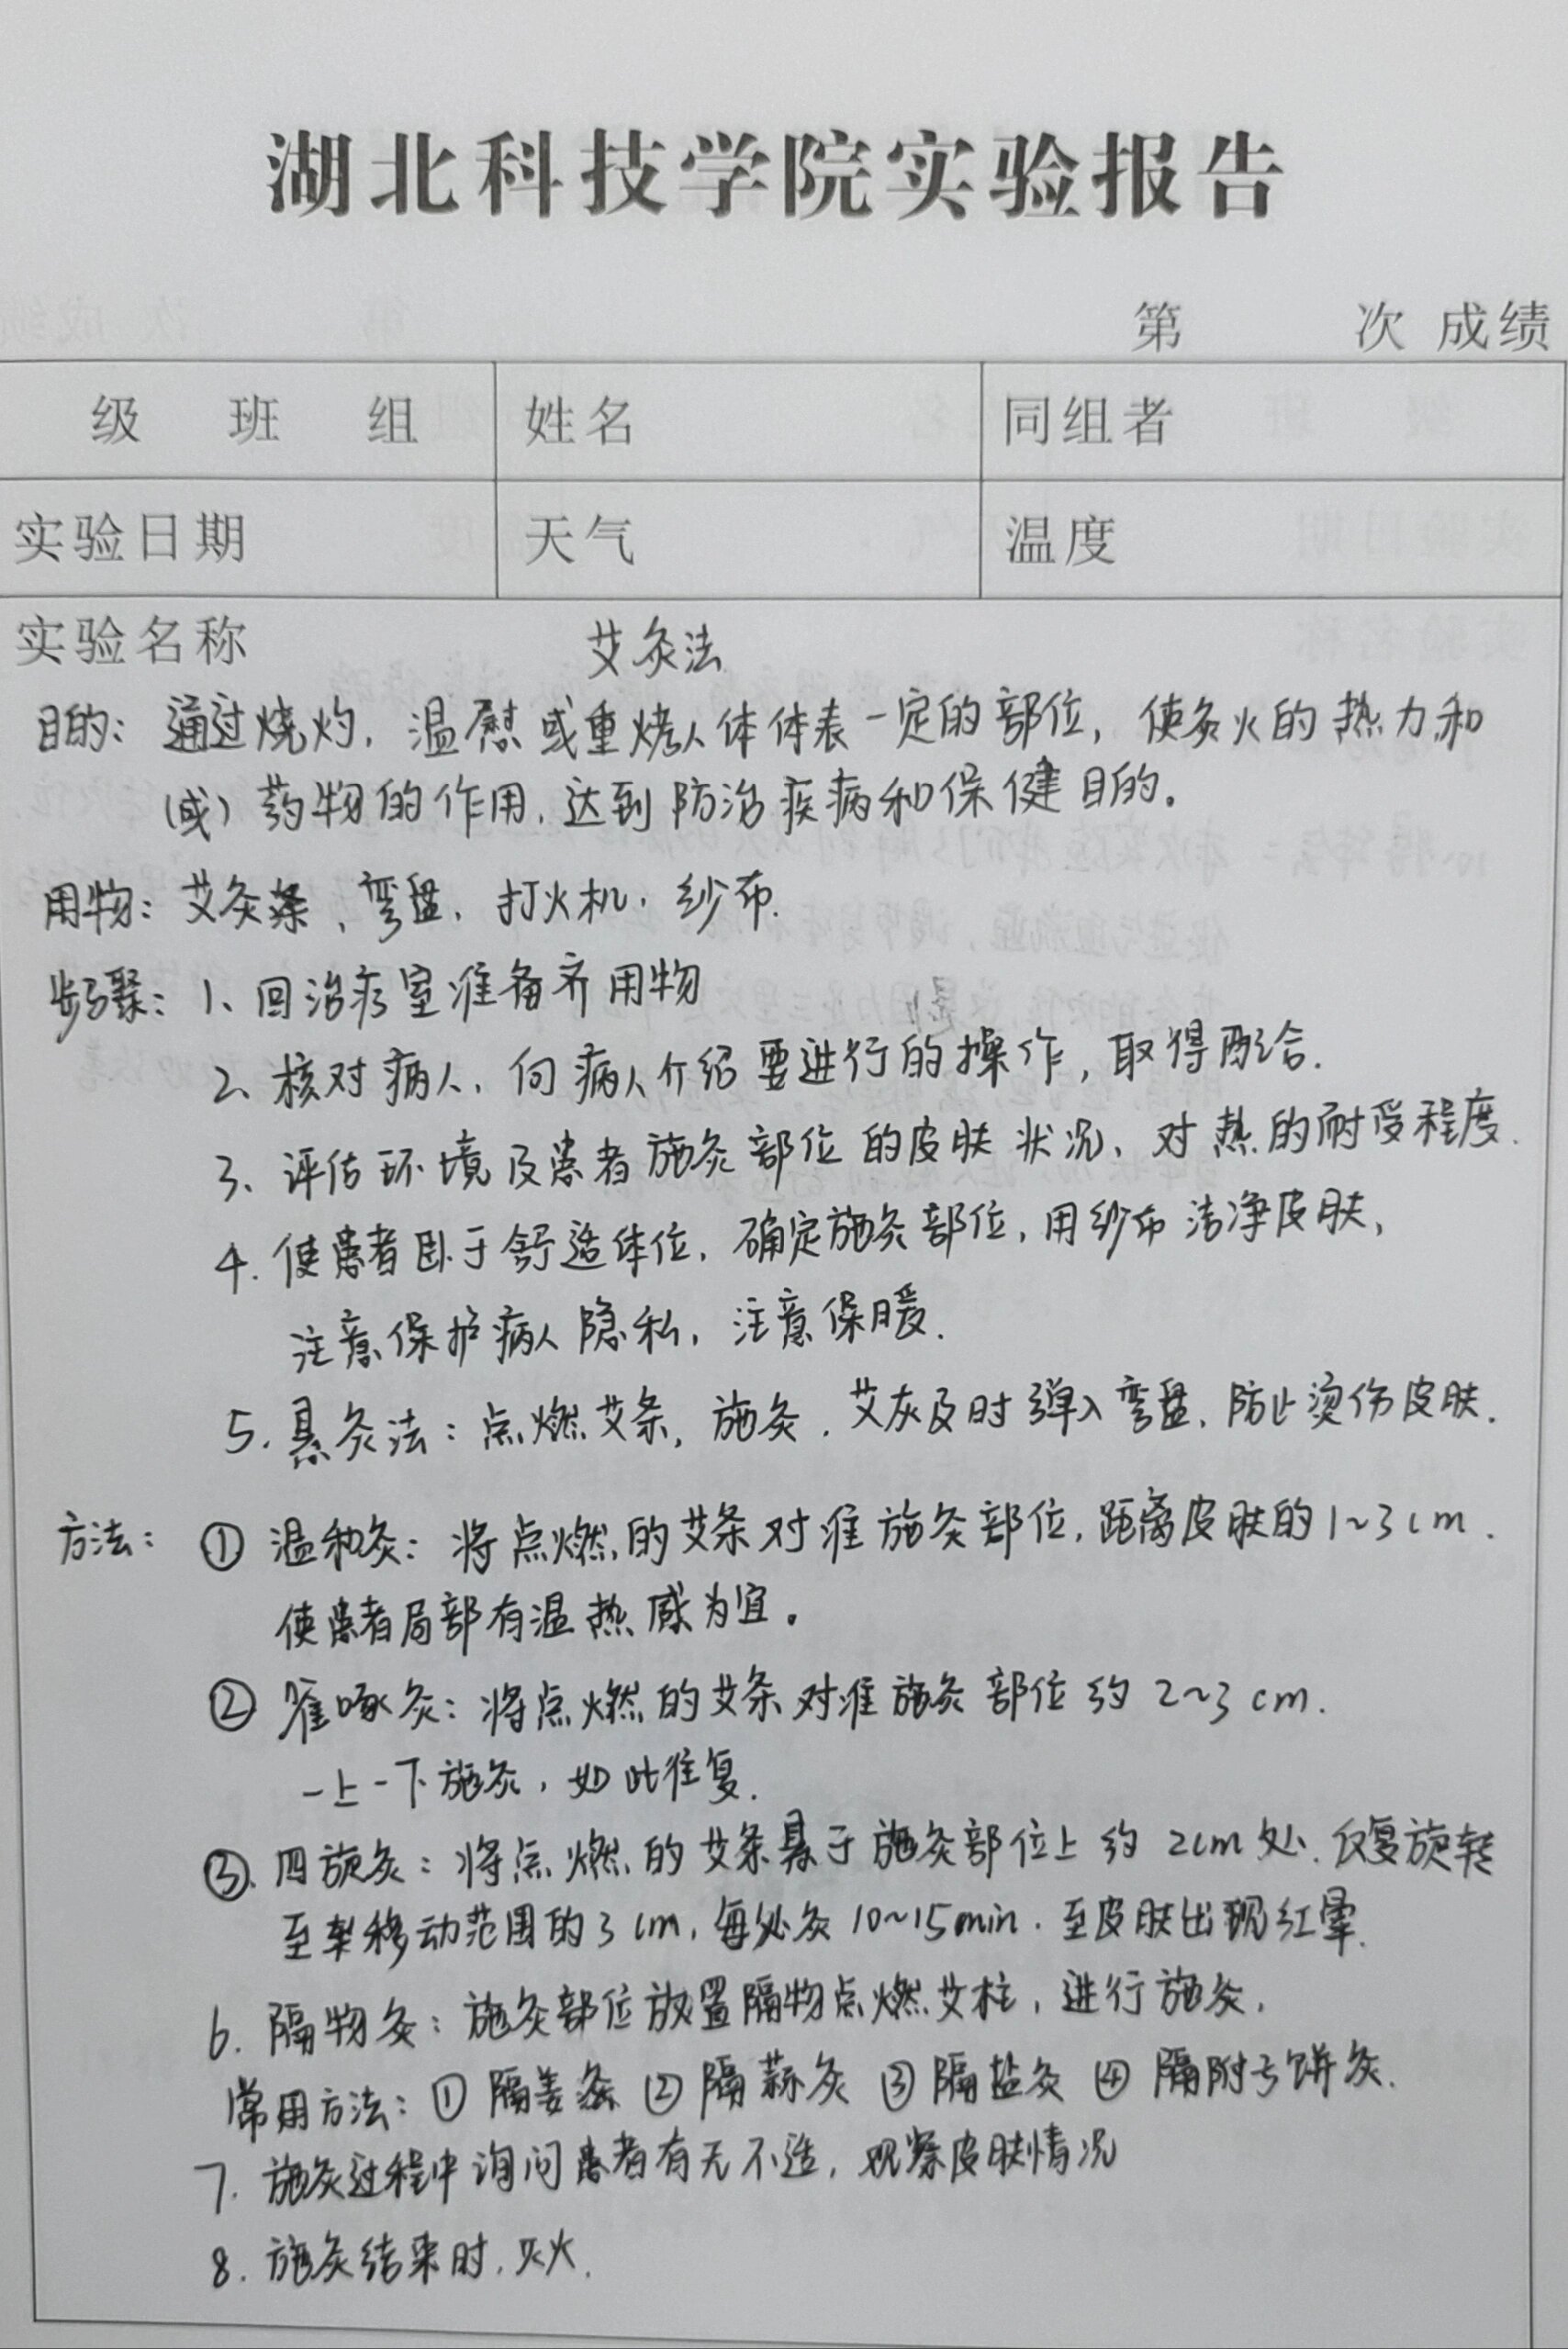 湖北科技学院实验报告
第 次 成绩
级 班 组 姓名 同组者
实验日期 天气 温度
实验名称 艾灸法
目的：通过烧灼，温熨或熏烤人体体表一定的部位，使灸火的热力和
（或）药物的作用，达到防治疾病和保健目的。
用物：艾灸条、弯盘、打火机、纱布.
步骤：1、回治疗室准备齐用物
2、核对病人、向病人介绍要进行的操作，取得配合.
3、评估环境及患者施灸部位的皮肤状况、对热的耐受程度.
4.使患者卧于舒适体位，确定施灸部位，用纱布洁净皮肤，
注意保护病人隐私，注意保暖.
5.悬灸法：点燃艾条，施灸.艾灰及时弹入弯盘，防止烫伤皮肤.
方法：①温和灸：将点燃的艾条对准施灸部位，距离皮肤的1~3cm.
使患者局部有温热感为宜。
②雀啄灸：将点燃的艾条对准施灸部位约2~3cm.
一上一下施灸，如此往复.
③.四旋灸：将点燃的艾条悬于施灸部位上约2cm处.反复旋转
至移动范围的3cm，每处灸10~15min.至皮肤出现红晕.
6.隔物灸：施灸部位放置隔物点燃艾柱，进行施灸，
常用方法：①隔姜灸②隔蒜灸③隔盐灸④隔附子饼灸.
7.施灸过程中询问患者有无不适，观察皮肤情况
8.施灸结束时，灭火.